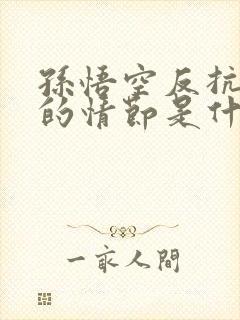 孫悟空反抗
的情節是什
一家人間